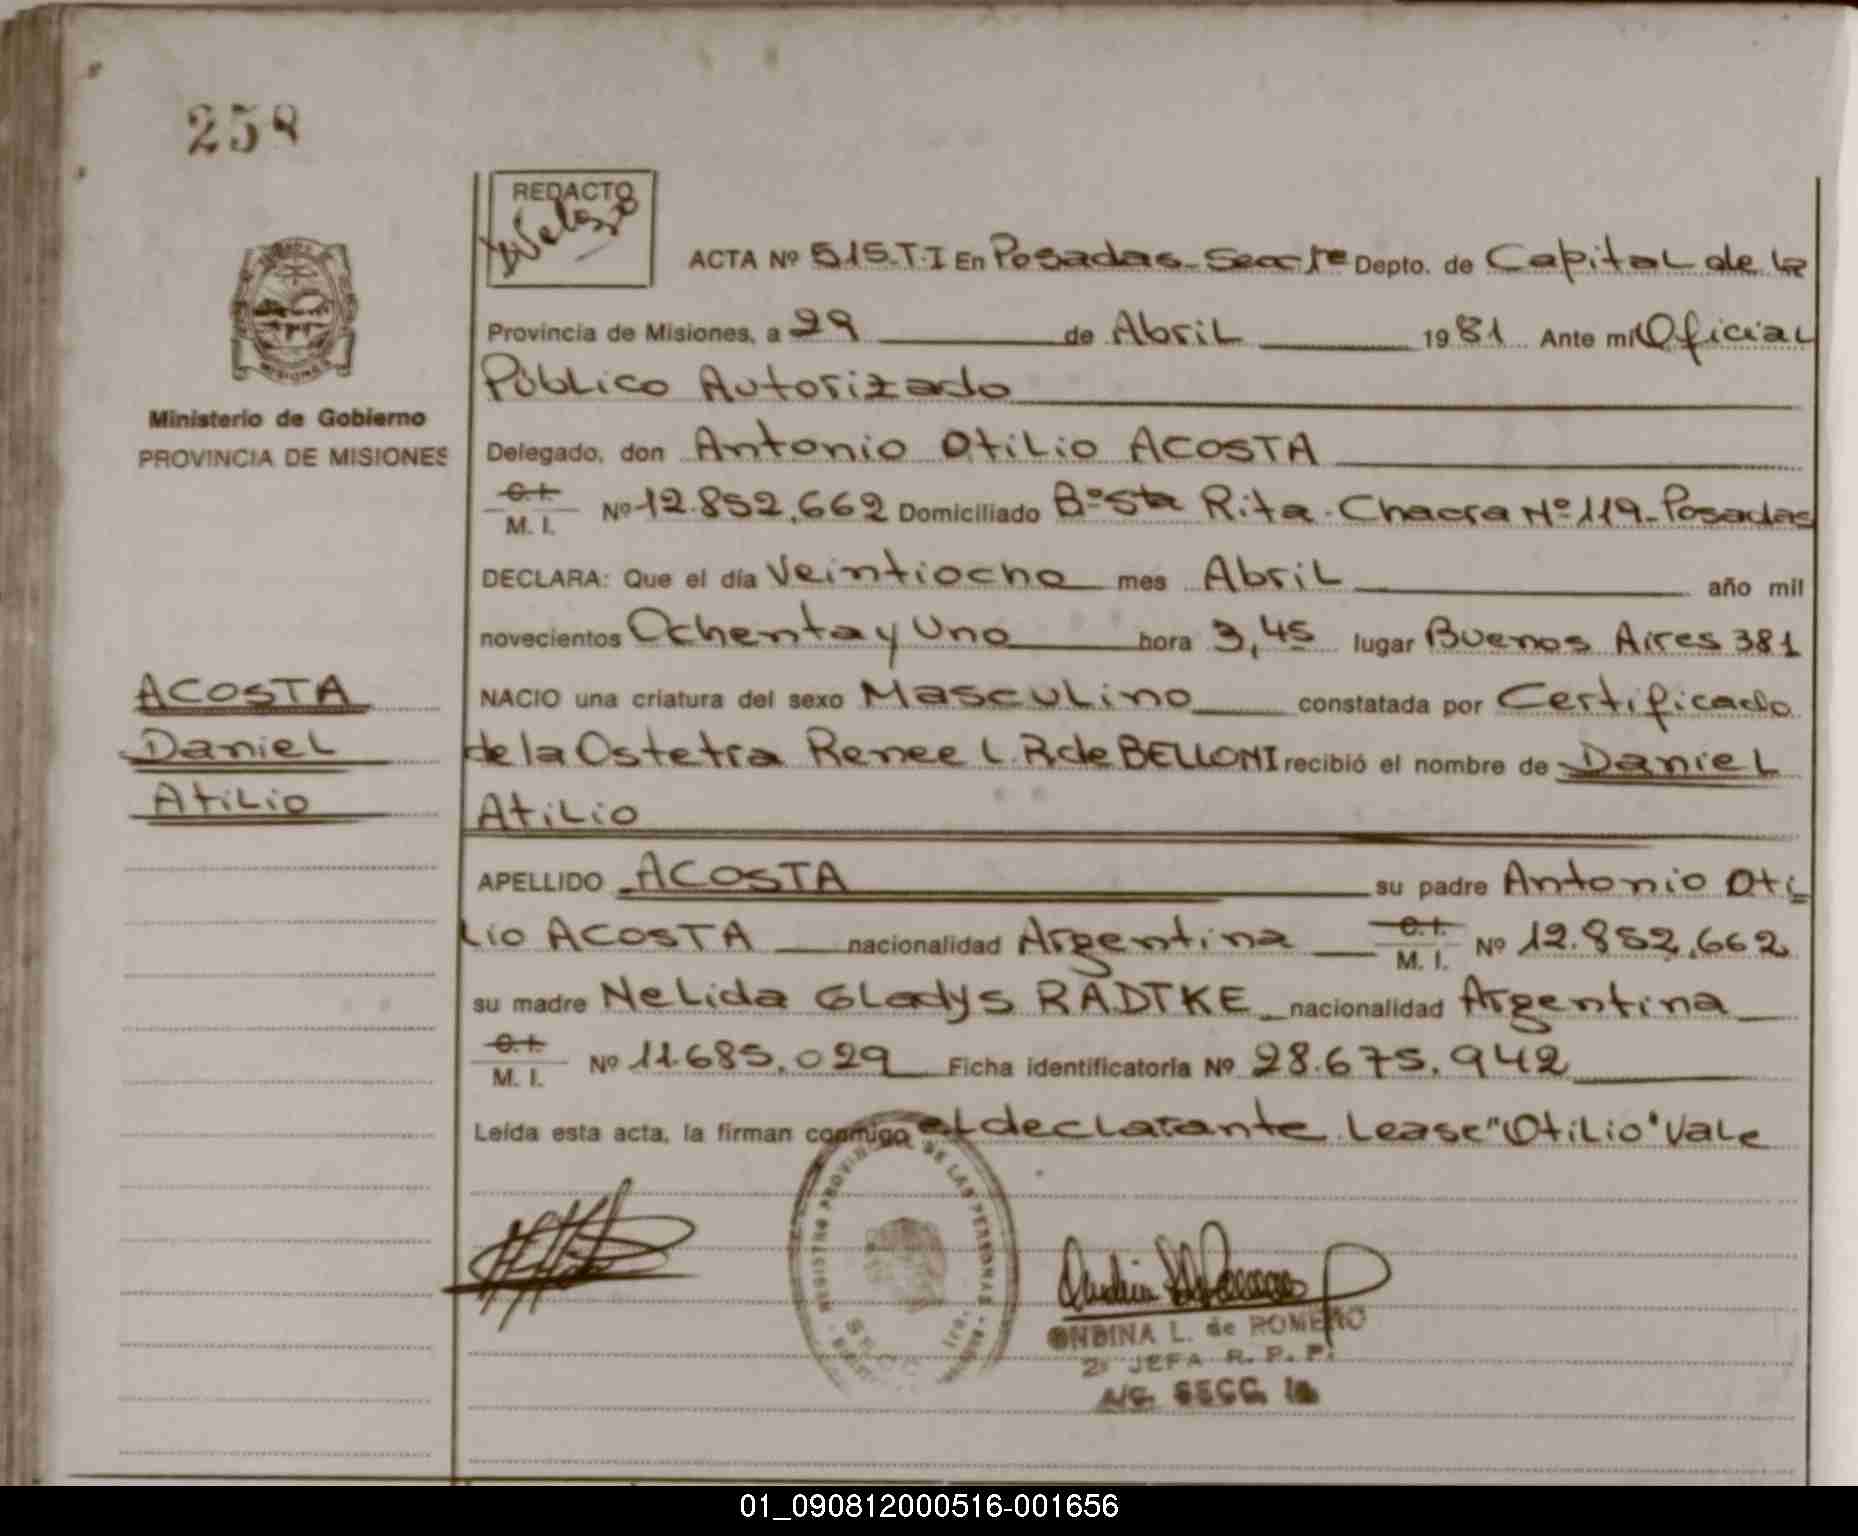 258
REDACTO
ACTA Nº 515.T.I En Posadas - Secc 1ra Depto. de Capital de la
Provincia de Misiones, a 29 de Abril 1981 Ante mí Oficial
Público Autorizado
Delegado, don Antonio Otilio ACOSTA
C.I.
M. I. Nº 12.852.662 Domiciliado Bº Sta Rita - Chacra Nº 119 - Posadas
DECLARA: Que el día Veintiocho mes Abril año mil
novecientos Ochenta y Uno hora 3,45 lugar Buenos Aires 381
NACIO una criatura del sexo Masculino constatada por Certificado
de la Ostetra Renee L. R. de BELLONI recibió el nombre de Daniel
Atilio
APELLIDO ACOSTA su padre Antonio Oti
lio ACOSTA nacionalidad Argentina C.I.
M. I. Nº 12.852.662
su madre Nelida Gladys RADTKE nacionalidad Argentina
C.I.
M. I. Nº 11.685.029 Ficha identificatoria Nº 28.675.942
Leída esta acta, la firman conmigo el declarante Lease "Otilio" Vale
Ministerio de Gobierno
PROVINCIA DE MISIONES
ACOSTA
Daniel
Atilio
MISIONES
REGISTRO PROVINCIAL DE LAS PERSONAS
ONDINA L. de ROMERO
2a JEFA R. P. P.
A/C. SECC. 1a
01_090812000516-001656